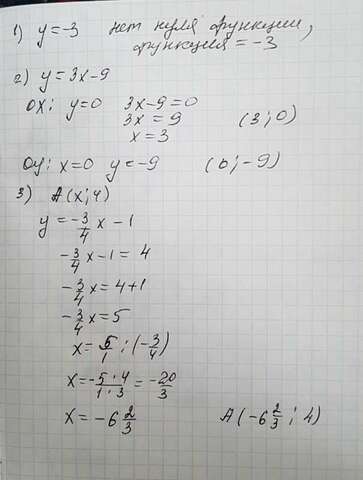 1) y = -3 нет нуля функции,
функция = -3
2) y = 3x - 9
OX: y = 0 3x - 9 = 0
3x = 9 (3; 0)
x = 3
Oy: x = 0 y = -9 (0; -9)
3) A(x; 4)
y = -3/4 x - 1
-3/4 x - 1 = 4
-3/4 x = 4 + 1
-3/4 x = 5
x = 5/1 : (-3/4)
x = -5·4/1·3 = -20/3
x = -6 2/3 A(-6 2/3; 4)